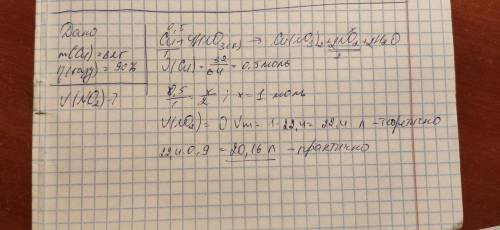 Дано
m(Cu)=32г
η(газу)=90%
V(NO₂)-?
0,5 x
Cu+4HNO₃(к) → Cu(NO₃)₂+2NO₂+2H₂O
1 2
ν(Cu) = 32/64 = 0,5 моль
0,5/1 = x/2 ; x = 1 моль
V(NO₂) = ν Vm = 1·22,4 = 22,4 л - теоретично
22,4·0,9 = 20,16 л - практично